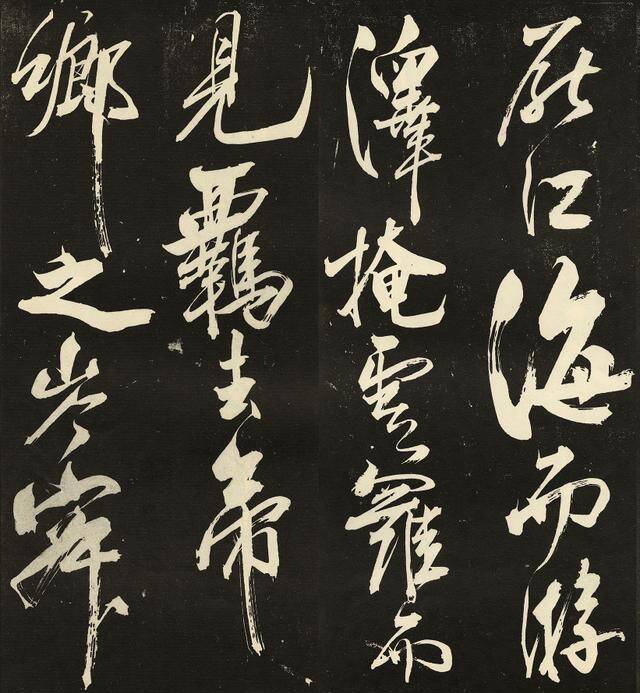 厭江海而游
澤掩雲羅而
見羈去帝
鄉之岑崒